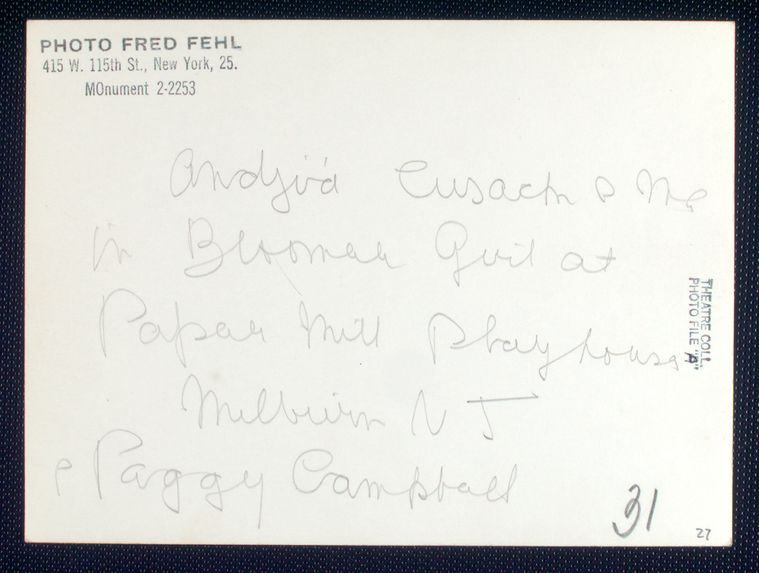 PHOTO FRED FEHL
415 W. 115th St., New York, 25.
MOnument 2-2253
Cusack & Me
in Bloomer Girl at
Paper Mill Playhouse
Millburn N J
Peggy Campbell
THEATRE COLL.
PHOTO FILE "A"
31
27